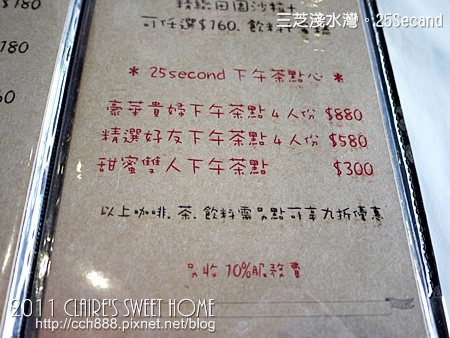 三芝淺水灣。25Secand
$180
可任選$160. 飲料
* 25second 下午茶點心 *
豪華貴婦下午茶點 4 人份 $880
精選好友下午茶點 4 人份 $580
甜蜜雙人下午茶點 $300
以上咖啡. 茶. 飲料需另點可享九折優惠
另收 10%服務費
2011 CLAIRE'S SWEET HOME
http://cch888.pixnet.net/blog